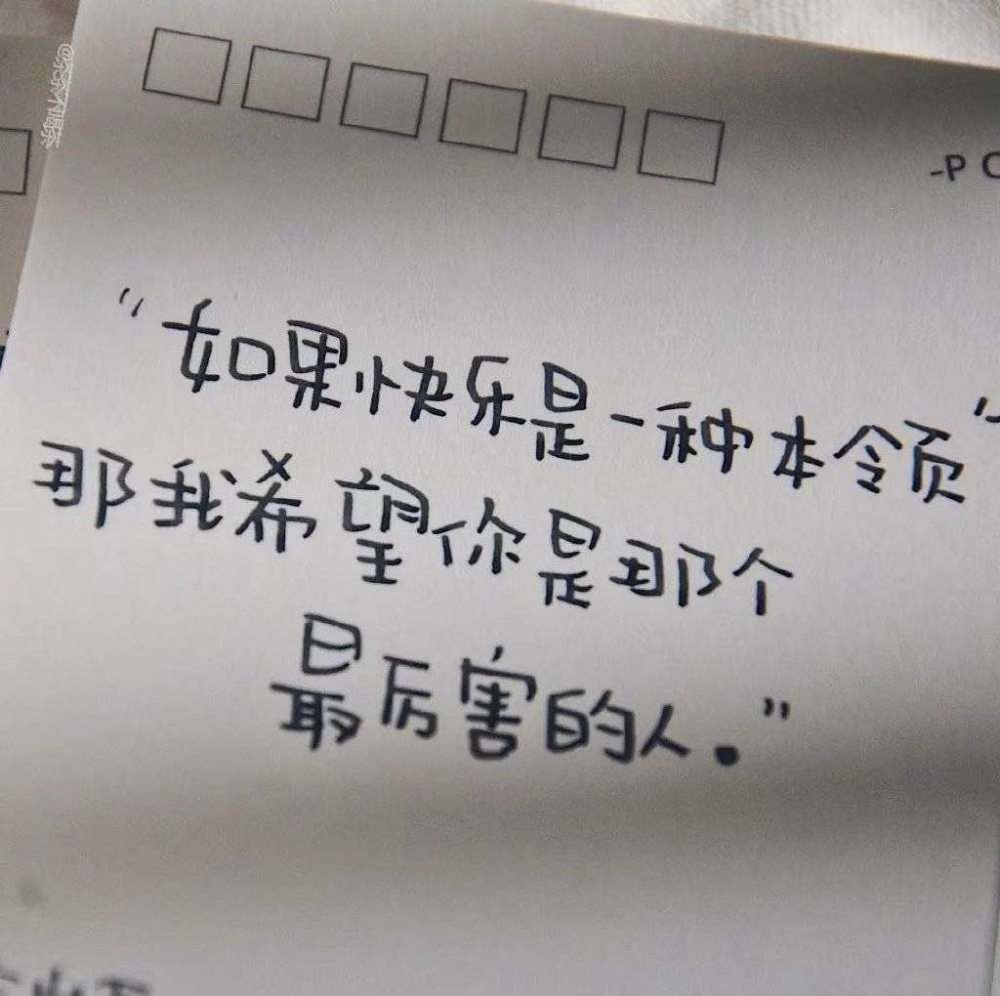 -P
“如果快乐是一种本领”
那我希望你是那个
最厉害的人.”